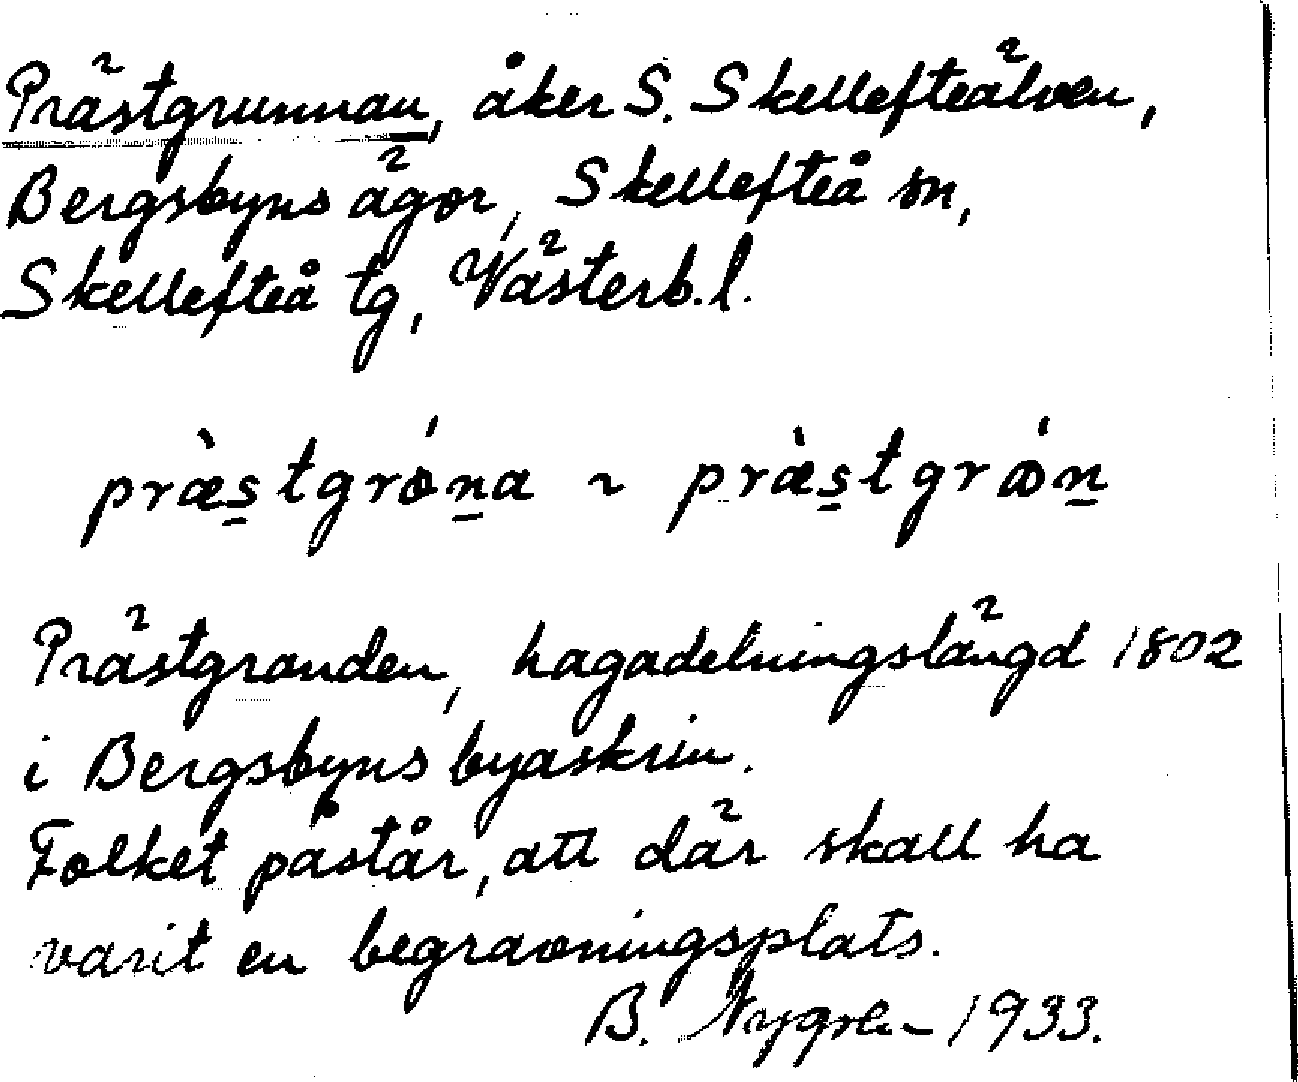 Prästgrunnan, åker S. Skellefteälven,
Bergsbyns ägor, Skellefteå sn,
Skellefteå tg, Västerb.l.
præ̀s̲tgrǿn̲a ~ præ̀s̲tgrǿn̲
Prästgranden, hagadelningslängd 1802
i Bergsbyns byaskrin.
Folket påstår, att där skall ha
varit en begravningsplats.
B. Nygren 1933.